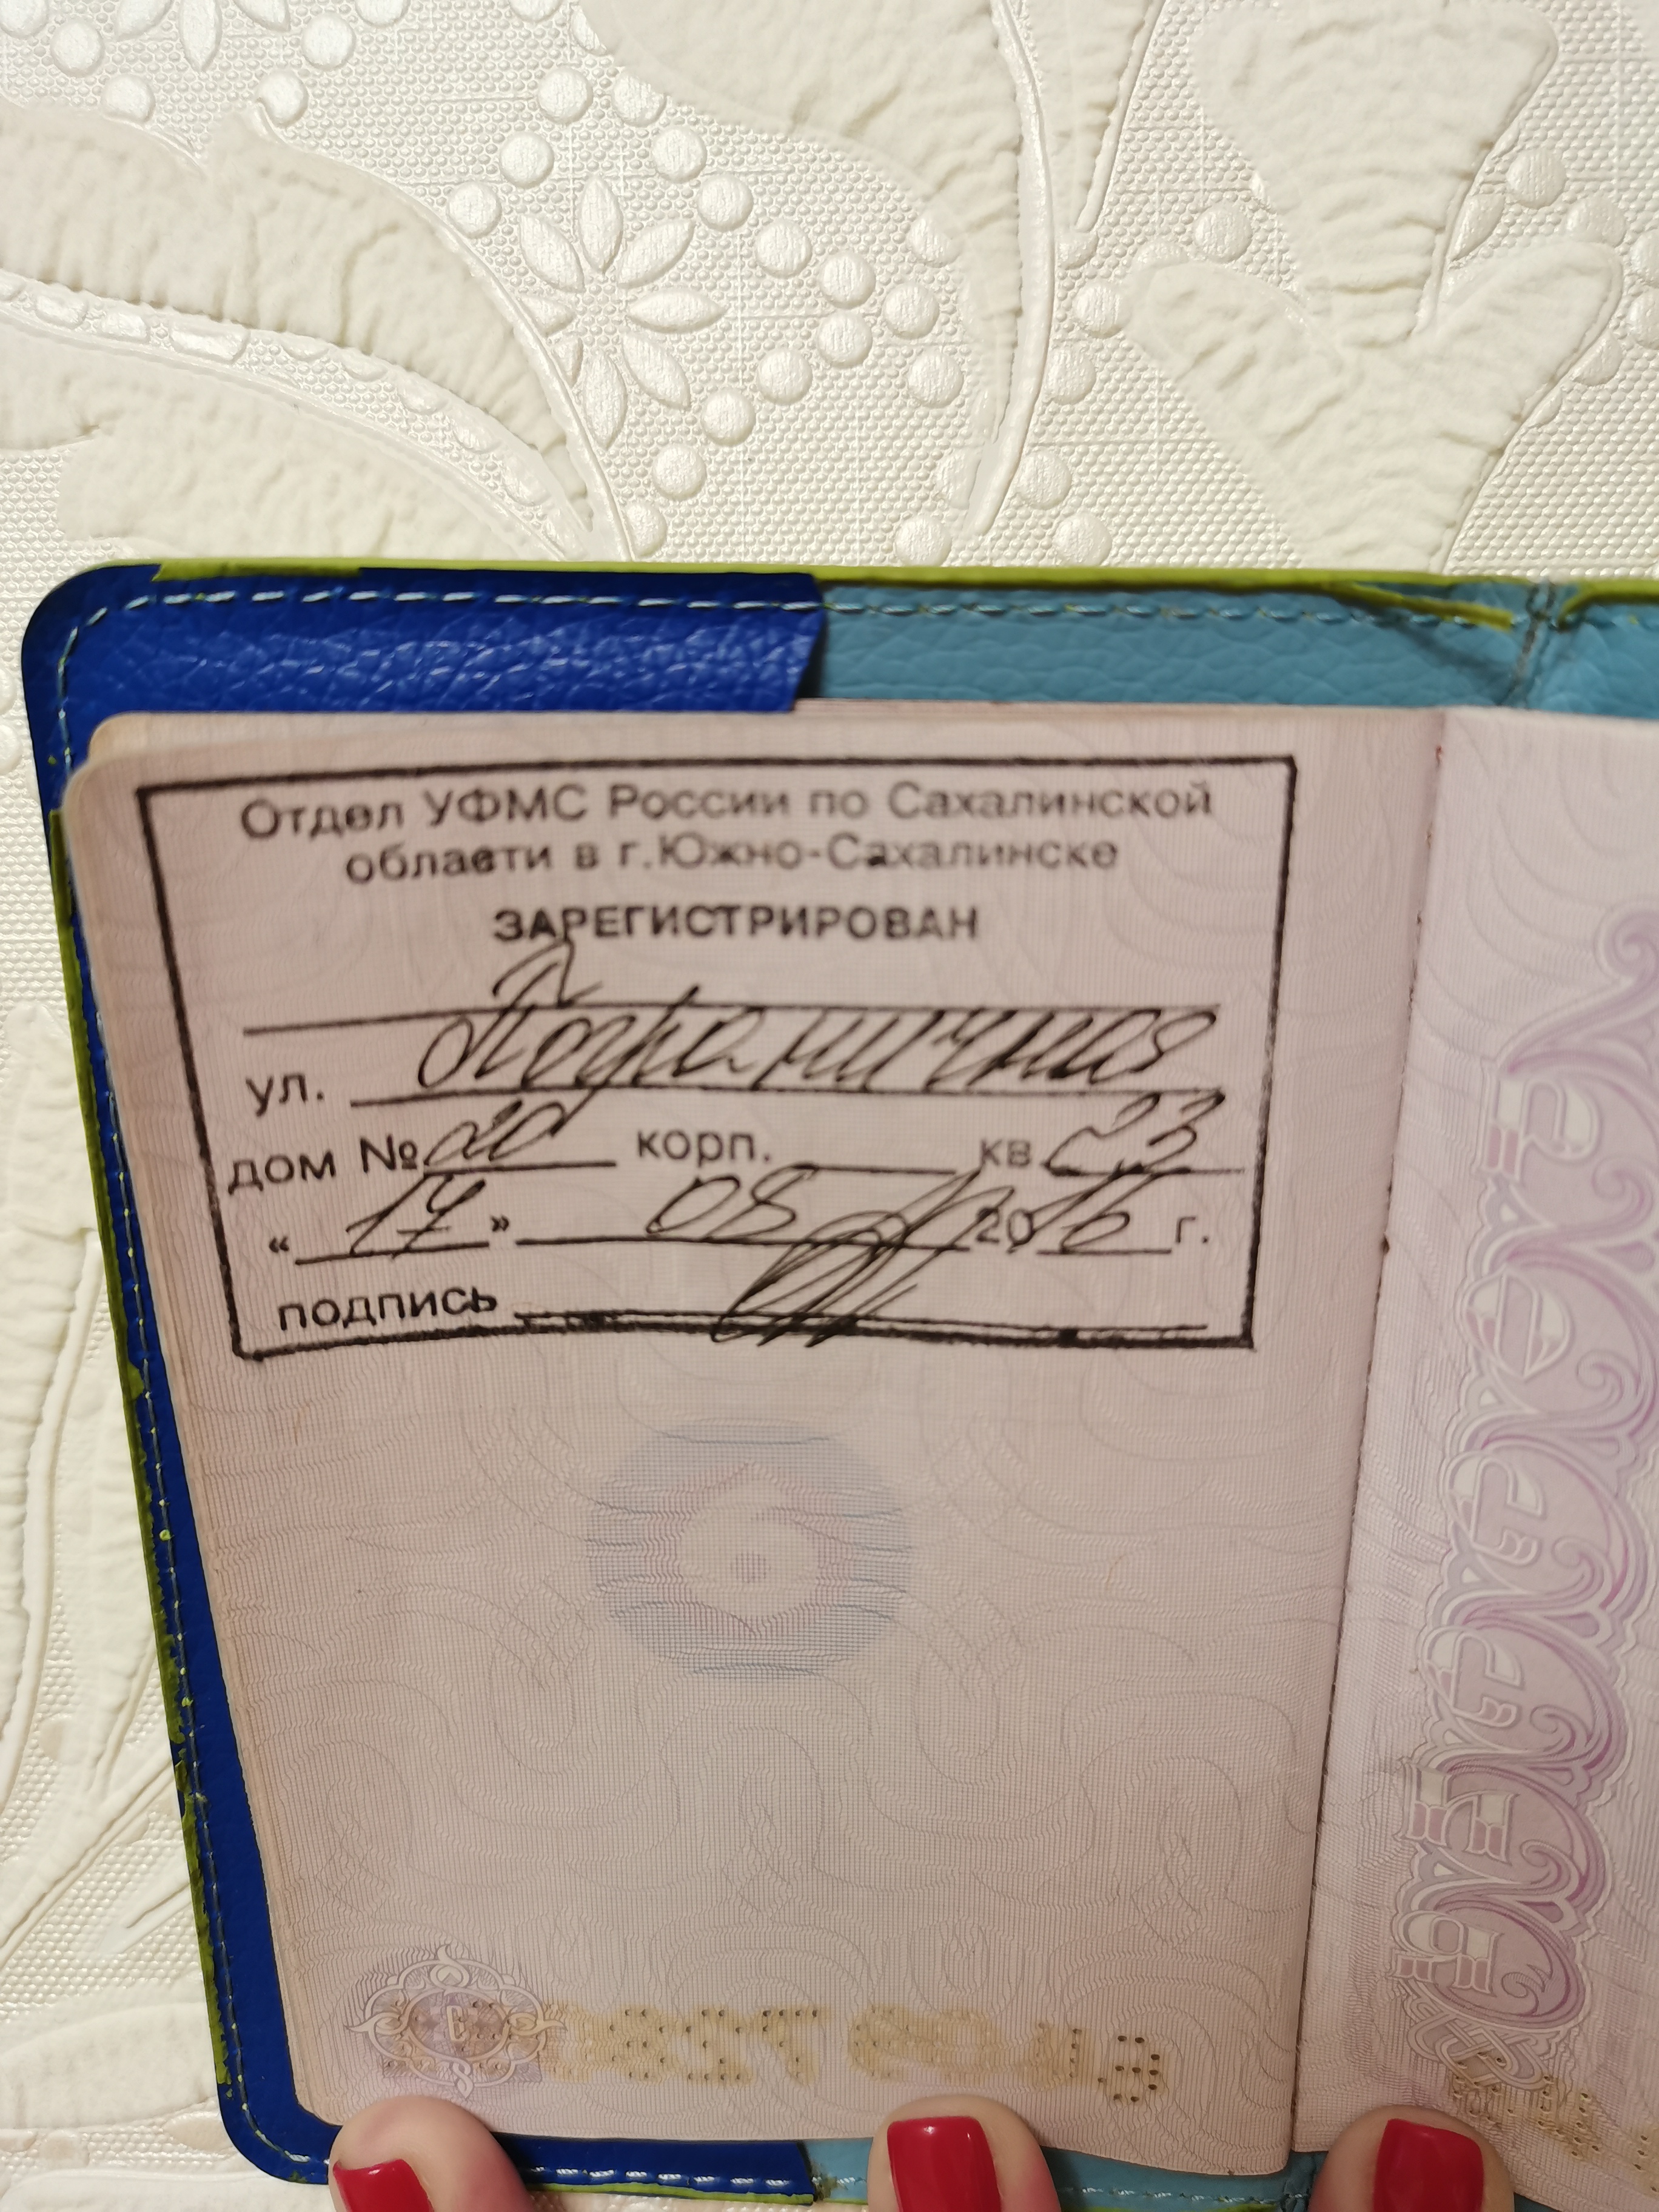 Отдел УФМС России по Сахалинской
области в г.Южно-Сахалинске
ЗАРЕГИСТРИРОВАН
ул. Пограничная
дом № 20 корп. кв 23
« 17 » 08 2016 г.
подпись